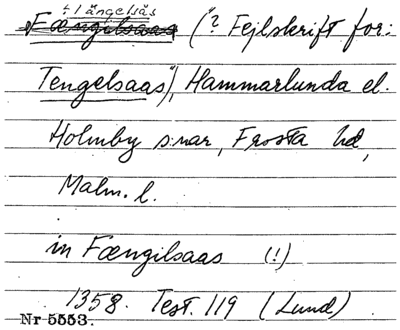 † Längelsås
Fængilsaas ("? Fejlskrift for:
Tengelsaas"), Hammarlunda el.
Holmby s:nar, Frosta hd,
Malm. l.
in Fængilsaas (!)
1358. Test. 119 (Lund)
Nr 5553.